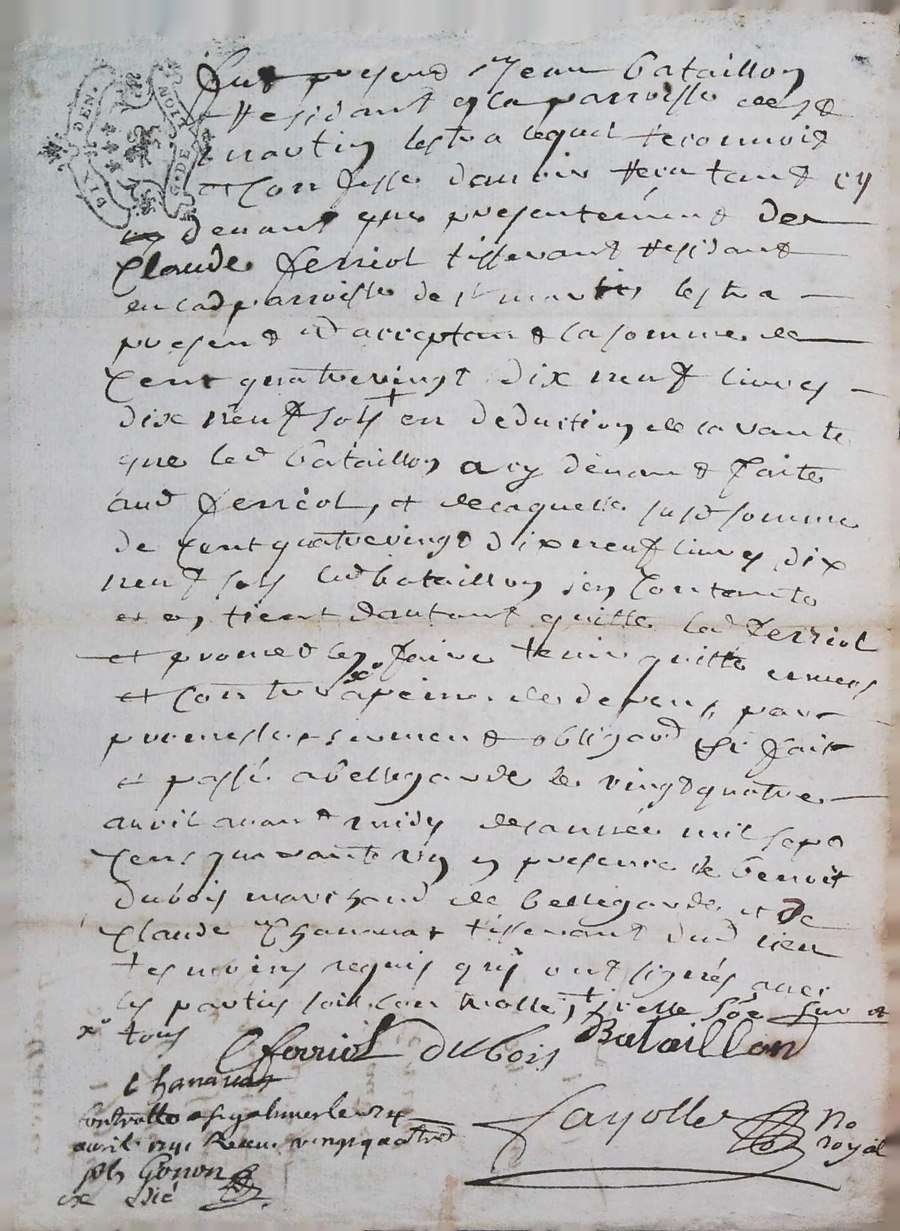 DIX DEN. G. DE LION
fut present Jean bataillon
Residant en la parroisse de st
martin lestra lequel Reconnoit
et Confesse davoir Receu tant cy
devant que presentement de
Claude ferriol tisserant Residant
en lad parroisse de st martin lestra
present et acceptant la somme de
Cent quatrevingt dix neuf livres
dix neuf sols en deduction de la vante
que led bataillon a cy devant faite
aud ferriol, et de laquelle susd somme
de Cent quatrevingt dix neuf livres dix
neuf sols led bataillon sen Contante
et en tient dautant quitte led ferriol
et promet len faire tenir quitte envers
et Contre a peine de depens, par
promesse serment obligaon fait
et passé a bellegarde le vingt quatre
avril avant midy de année mil sept
Cens quarante un en presence de benoit
dubois marchand de bellegarde et de
Claude Thanavat tisserant dud lieu
tesmoins requis qui ont signés avec
les parties soit con
xo tous
C ferriol dubois Bataillon
thanavat
Controllé a st galmier le 24
avril 1741 Receu vingt quatre
sols Gonon
Fayolle no
royal